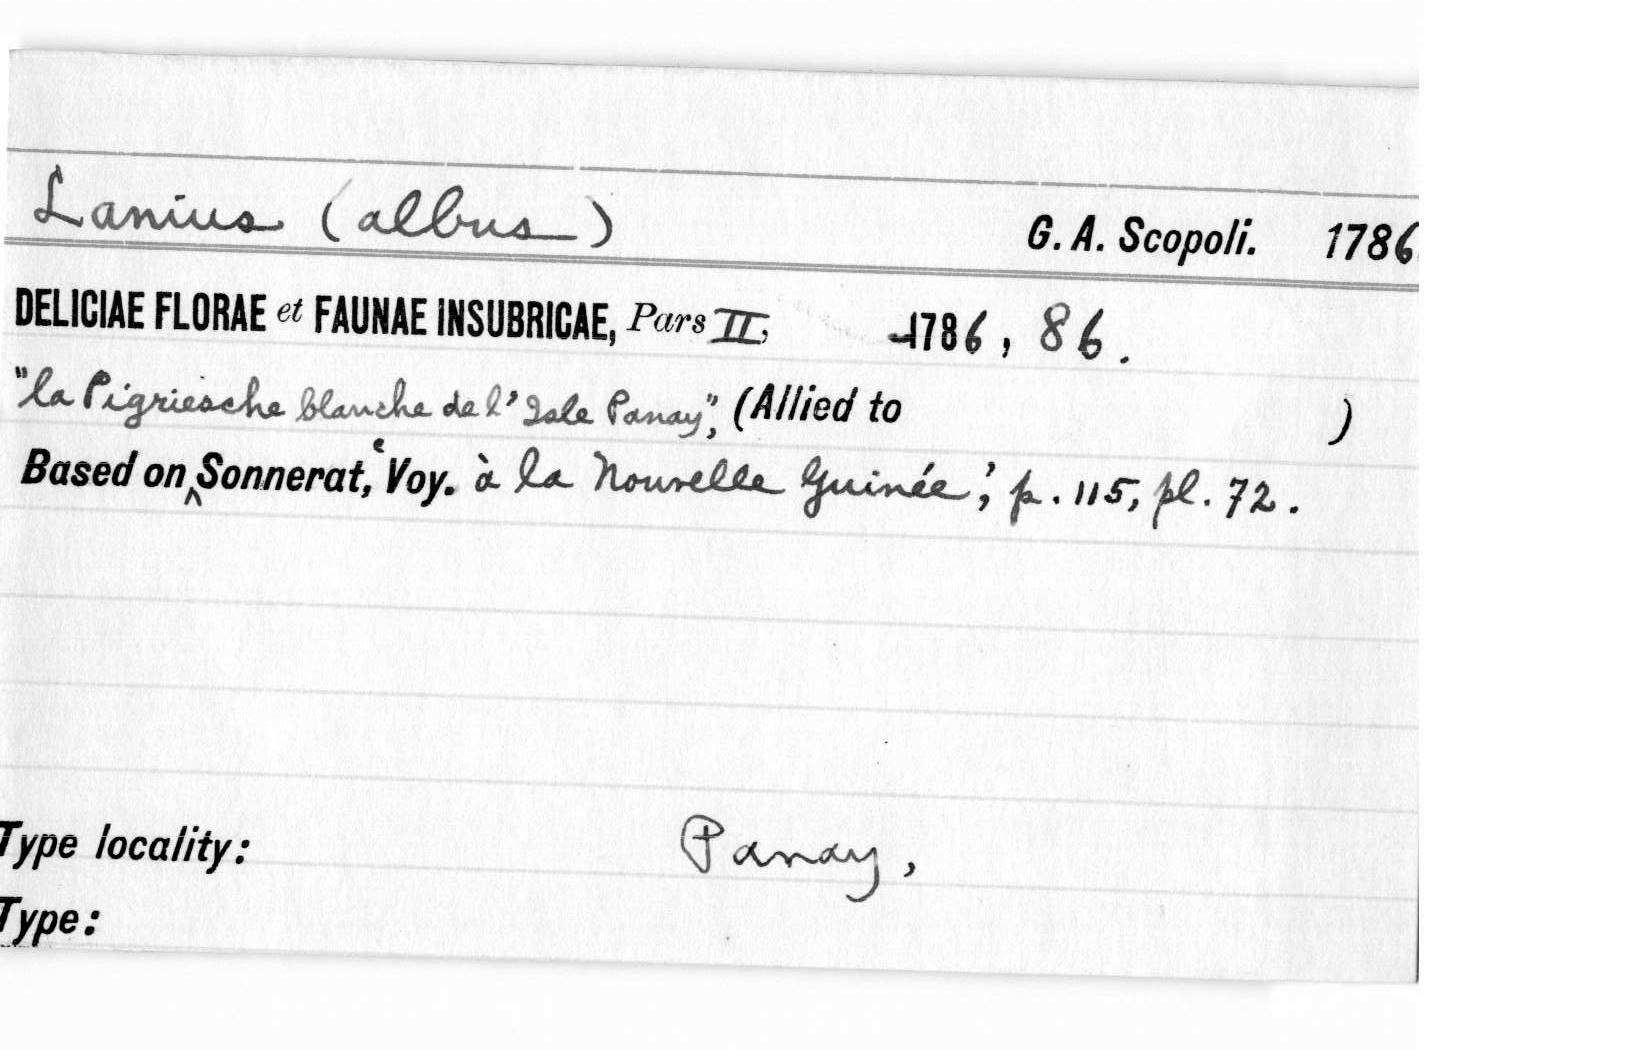 Lanius (albus) G. A. Scopoli. 1786
DELICIAE FLORAE et FAUNAE INSUBRICAE, Pars II, 1786, 86.
"la Pigriesche blanche de l'Isle Panay", (Allied to )
Based on Sonnerat, ‘Voy. à la Nouvelle Guinée’, p. 115, pl. 72.
Type locality: Panay,
Type: